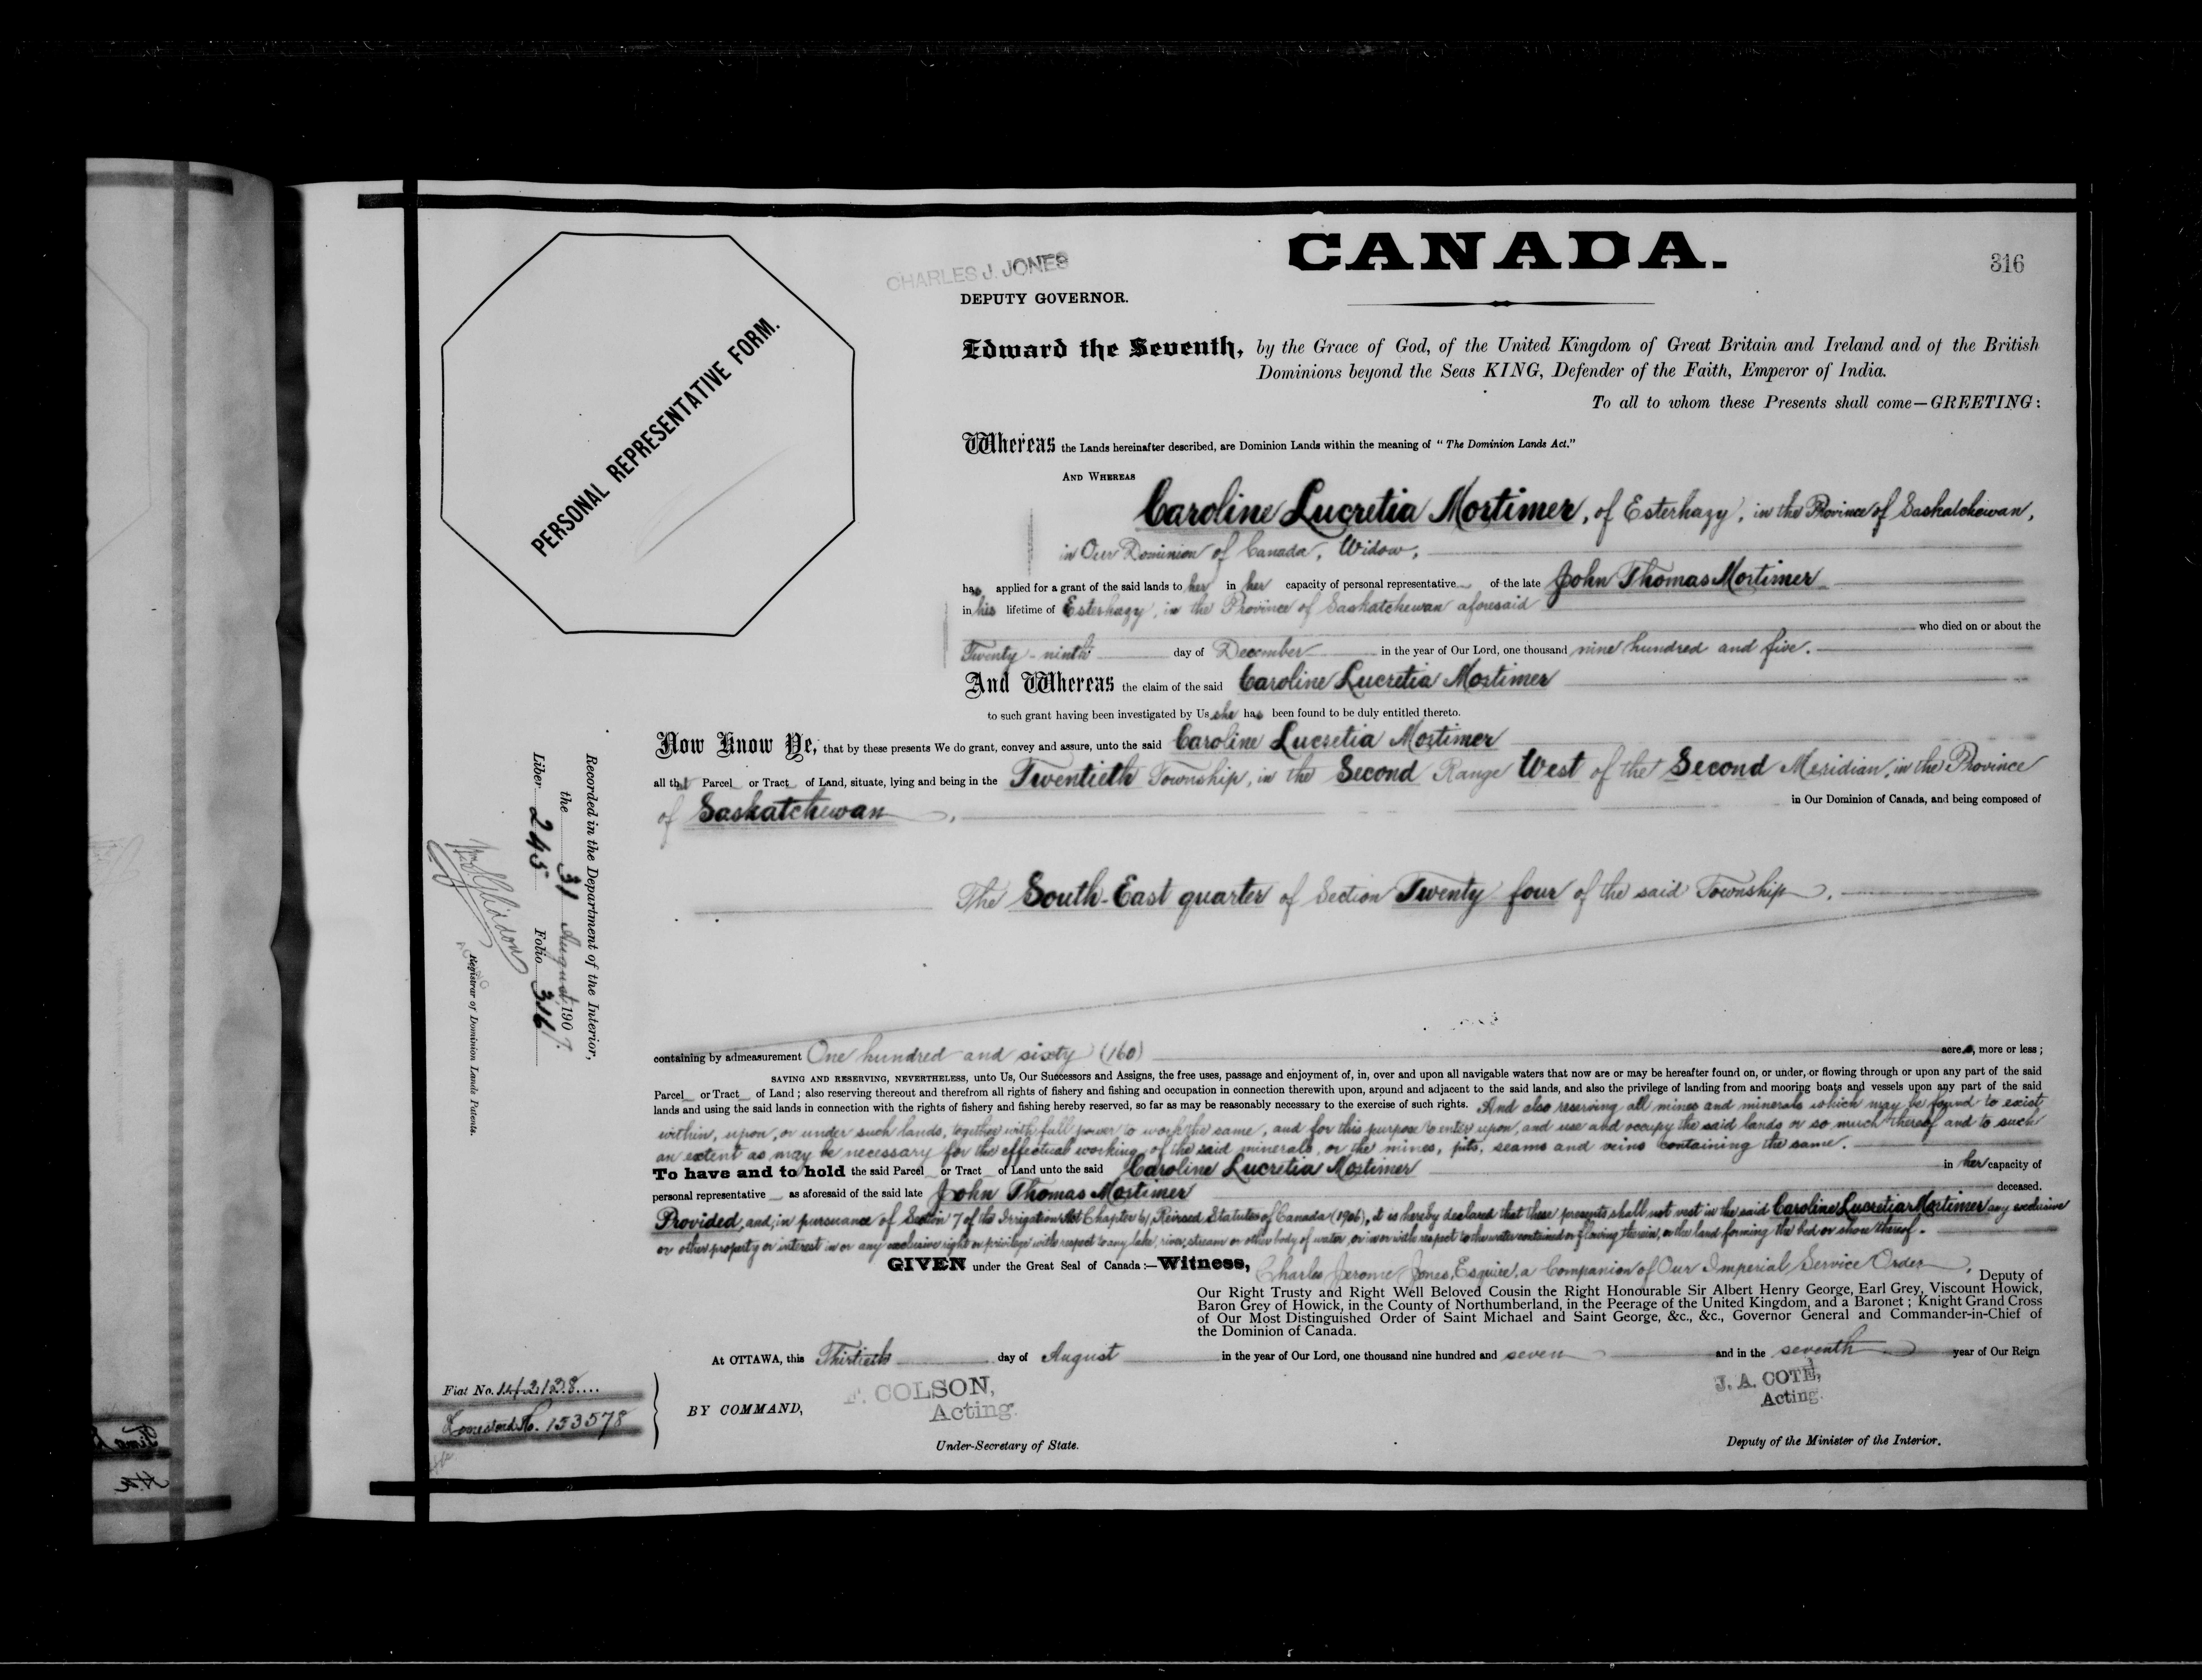 CANADA.
316
CHARLES J. JONES
DEPUTY GOVERNOR.
PERSONAL REPRESENTATIVE FORM.
Edward the Seventh, by the Grace of God, of the United Kingdom of Great Britain and Ireland and of the British
Dominions beyond the Seas KING, Defender of the Faith, Emperor of India.
To all to whom these Presents shall come—GREETING:
Whereas the Lands hereinafter described, are Dominion Lands within the meaning of "The Dominion Lands Act."
AND WHEREAS
Caroline Lucretia Mortimer, of Esterhazy, in the Province of Saskatchewan,
in Our Dominion of Canada, Widow,
has applied for a grant of the said lands to her in her capacity of personal representative of the late John Thomas Mortimer
in his lifetime of Esterhazy, in the Province of Saskatchewan aforesaid
who died on or about the
Twenty-ninth day of December in the year of Our Lord, one thousand nine hundred and five.
And Whereas the claim of the said Caroline Lucretia Mortimer
to such grant having been investigated by Us she has been found to be duly entitled thereto.
Now Know Ye, that by these presents We do grant, convey and assure, unto the said Caroline Lucretia Mortimer
all that Parcel or Tract of Land, situate, lying and being in the Twentieth Township, in the Second Range West of the Second Meridian, in the Province
of Saskatchewan, in Our Dominion of Canada, and being composed of
The South-East quarter of Section Twenty four of the said Township,
containing by admeasurement One hundred and sixty (160) acres, more or less;
SAVING AND RESERVING, NEVERTHELESS, unto Us, Our Successors and Assigns, the free uses, passage and enjoyment of, in, over and upon all navigable waters that now are or may be hereafter found on, or under, or flowing through or upon any part of the said
Parcel or Tract of Land; also reserving thereout and therefrom all rights of fishery and fishing and occupation in connection therewith upon, around and adjacent to the said lands, and also the privilege of landing from and mooring boats and vessels upon any part of the said
lands and using the said lands in connection with the rights of fishery and fishing hereby reserved, so far as may be reasonably necessary to the exercise of such rights. And also reserving all mines and minerals which may be found to exist
within, upon, or under such lands, together with full power to work the same, and for this purpose to enter upon, and use and occupy the said lands or so much thereof and to such
an extent as may be necessary for the effectual working of the said minerals, or the mines, pits, seams and veins containing the same.
To have and to hold the said Parcel or Tract of Land unto the said Caroline Lucretia Mortimer in her capacity of
personal representative as aforesaid of the said late John Thomas Mortimer deceased.
Provided, and, in pursuance of Section 7 of the Irrigation Act Chapter 61, Revised Statutes of Canada (1906), it is hereby declared that these presents shall not vest in the said Caroline Lucretia Mortimer any exclusive
or other property or interest in or any exclusive right or privilege with respect to any lake, river, stream or other body of water, or in or with respect to the water contained or flowing therein, or the land forming the bed or shore thereof.
GIVEN under the Great Seal of Canada:—Witness, Charles Jerome Jones, Esquire, a Companion of Our Imperial Service Order, Deputy of
Our Right Trusty and Right Well Beloved Cousin the Right Honourable Sir Albert Henry George, Earl Grey, Viscount Howick,
Baron Grey of Howick, in the County of Northumberland, in the Peerage of the United Kingdom, and a Baronet; Knight Grand Cross
of Our Most Distinguished Order of Saint Michael and Saint George, &c., &c., Governor General and Commander-in-Chief of
the Dominion of Canada.
At OTTAWA, this Thirtieth day of August in the year of Our Lord, one thousand nine hundred and seven and in the seventh year of Our Reign
BY COMMAND,
F. COLSON,
Acting.
Under-Secretary of State.
J. A. COTÉ,
Acting.
Deputy of the Minister of the Interior.
Fiat No. 142128....
Homestead No. 153578
Recorded in the Department of the Interior,
the 31 August 1907.
Liber 245 Folio 316
Registrar of Dominion Lands Patents.